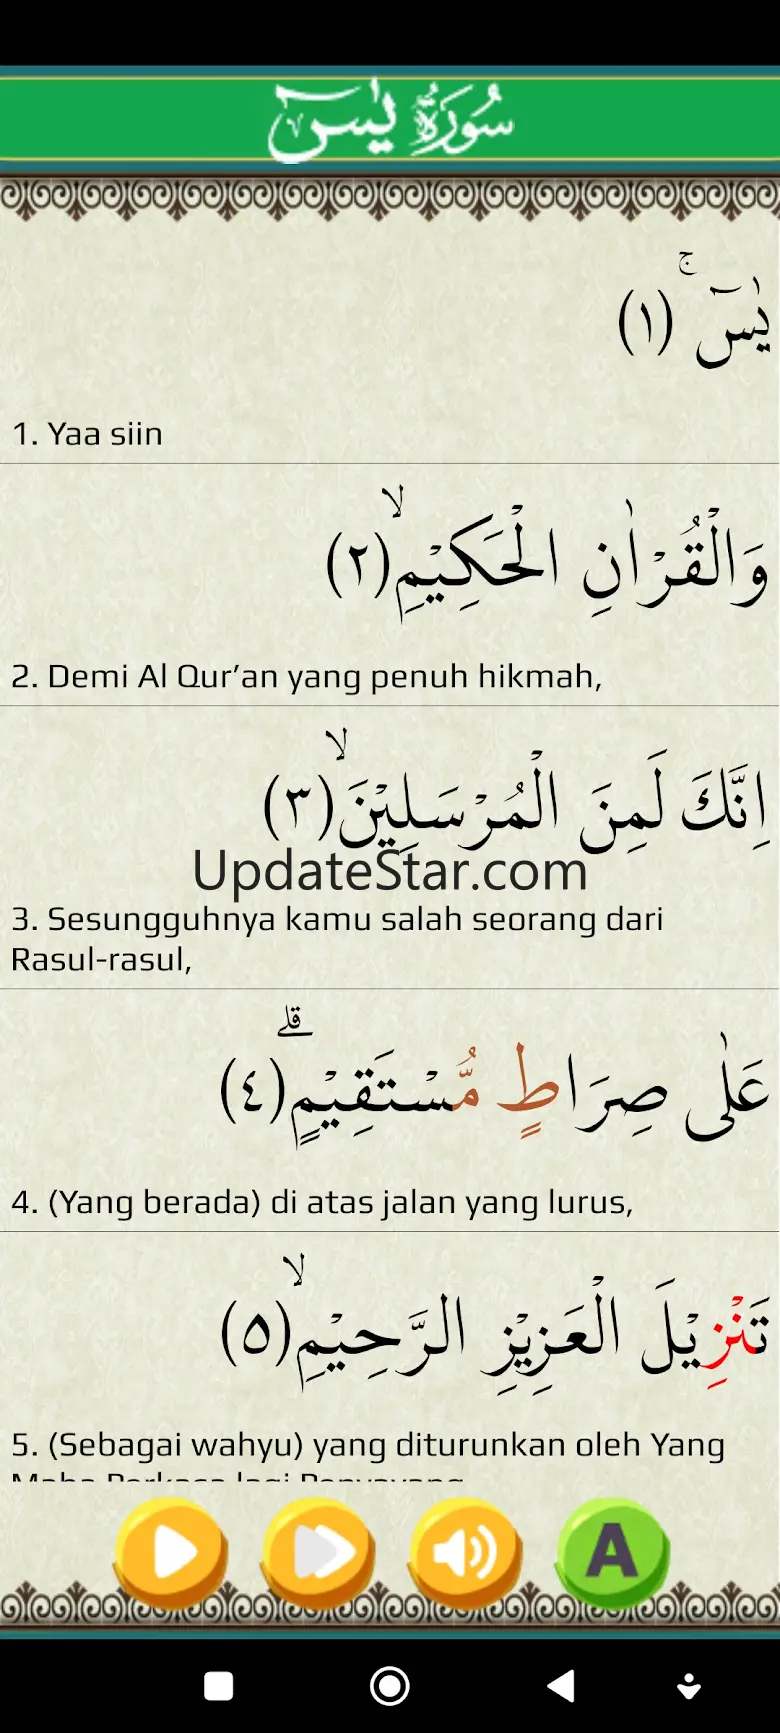 سُورَةُ يٰسٓ
يٰسٓ ۚ (١)
1. Yaa siin
وَالْقُرْاٰنِ الْحَكِيْمِۙ (٢)
2. Demi Al Qur’an yang penuh hikmah,
اِنَّكَ لَمِنَ الْمُرْسَلِيْنَۙ (٣)
UpdateStar.com
3. Sesungguhnya kamu salah seorang dari
Rasul-rasul,
عَلٰى صِرَاطٍ مُّسْتَقِيْمٍۗ (٤)
4. (Yang berada) di atas jalan yang lurus,
تَنْزِيْلَ الْعَزِيْزِ الرَّحِيْمِۙ (٥)
5. (Sebagai wahyu) yang diturunkan oleh Yang
A